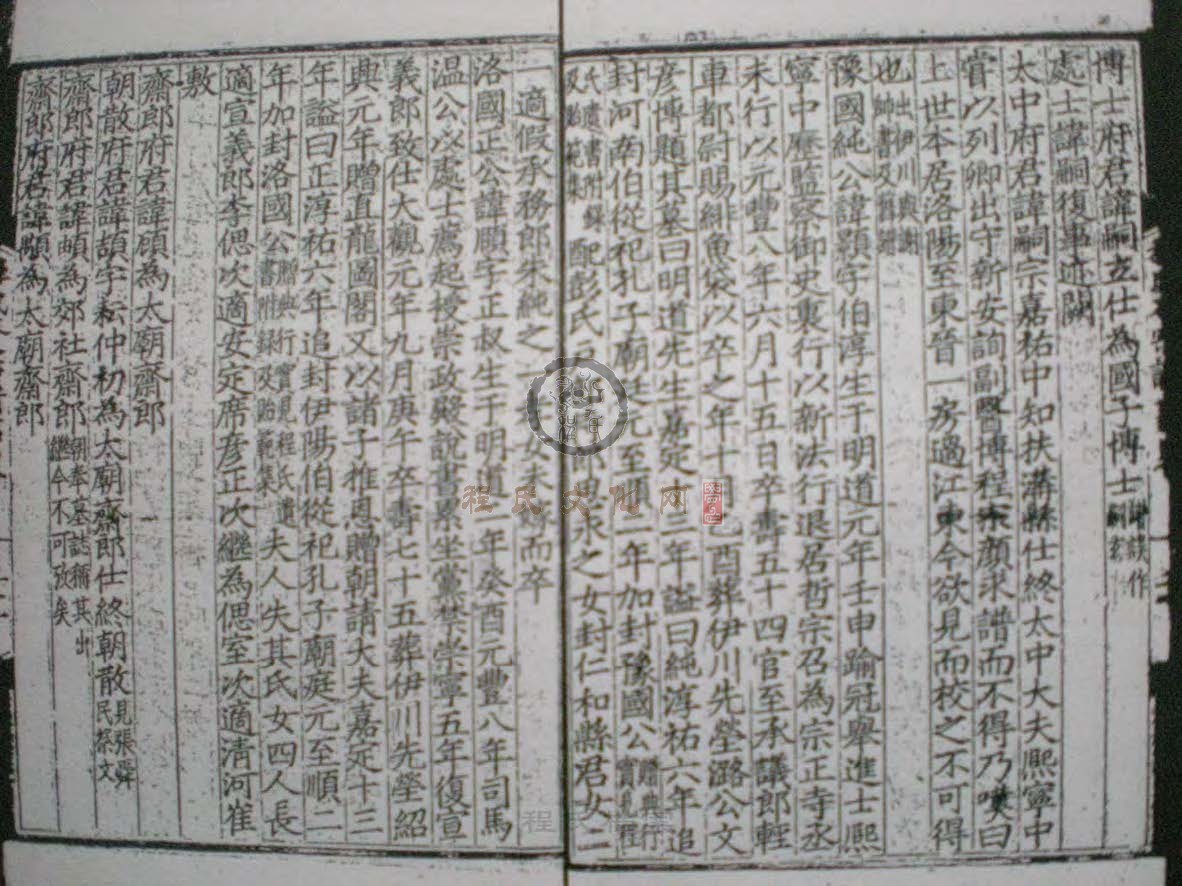 博士府君諱嗣立仕為國子博士
處士諱嗣復事迹闕
太中府君諱嗣宗嘉祐中知扶溝縣仕終太中大夫熙寧中
嘗以列卿出守新安詢副醫博程顏求譜而不得乃嘆曰
上世本居洛陽至東晉一房過江東今欲見而校之不可得
也
豫國純公諱顥字伯淳生于明道元年壬申踰冠舉進士熙
寧中歷監察御史裏行以新法行退居哲宗召為宗正寺丞
未行以元豐八年六月十五日卒壽五十四官至承議郎輕
車都尉賜緋魚袋以卒之年十月己酉葬伊川先塋潞公文
彥博題其墓曰明道先生嘉定十三年謚曰純淳祐六年追
封河南伯從祀孔子廟廷元至順二年加封豫國公贈典行實見程
氏遺書附錄及貽範集配彭氏之女封仁和縣君女二
一適假承務郎朱純之一女未嫁而卒
洛國正公諱頤字正叔生于明道二年癸酉元豐八年司馬
溫公以處士薦起授崇政殿說書累坐黨禁崇寧五年復宣
義郎致仕大觀元年九月庚午卒壽七十五葬伊川先塋紹
興元年贈直龍圖閣又以諸子推恩贈朝請大夫嘉定十三
年謚曰正淳祐六年追封伊陽伯從祀孔子廟庭元至順二
年加封洛國公贈典行實見程氏遺書附錄及貽範集夫人失其氏女四人長
適宣義郎李偲次適安定席彥正次繼為偲室次適清河崔
敷
齋郎府君諱頎為太廟齋郎
朝散府君諱頡字耘仲初為太廟齋郎仕終朝散見張舜民祭文
齋郎府君諱頔為郊社齋郎朝奉墓誌稱其出繼今不可攷矣
齋郎府君諱顒為太廟齋郎
程氏文化网